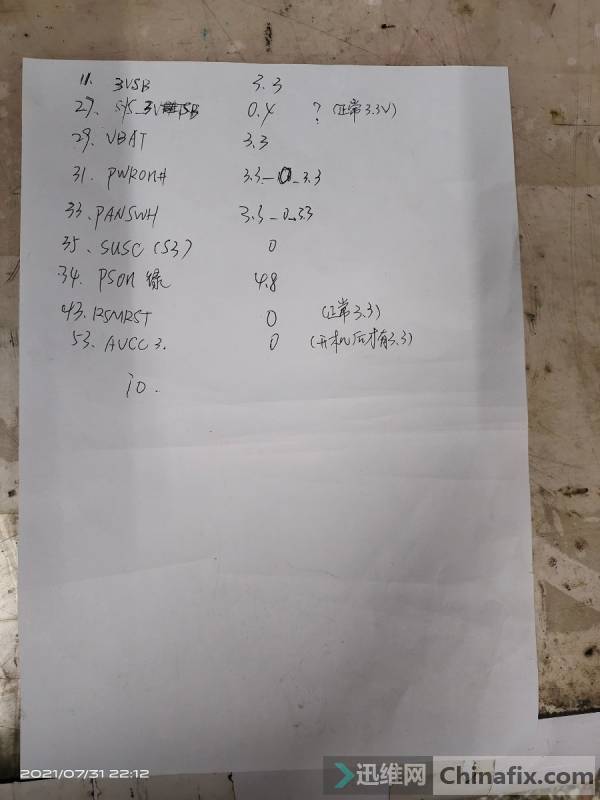 11. 3VSB 3.3
27. SYS_3VSB 0.4 ? (正常3.3V)
29. VBAT 3.3
31. PWRON# 3.3-0-3.3
33. PANSWH 3.3-0-3.3
35. SUSC (S3) 0
34. PSON 绿 4.8
43. RSMRST 0 (正常3.3)
53. AVCC3. 0 (开机后才有3.3)
io.
2021/07/31 22:12
迅维网 Chinafix.com